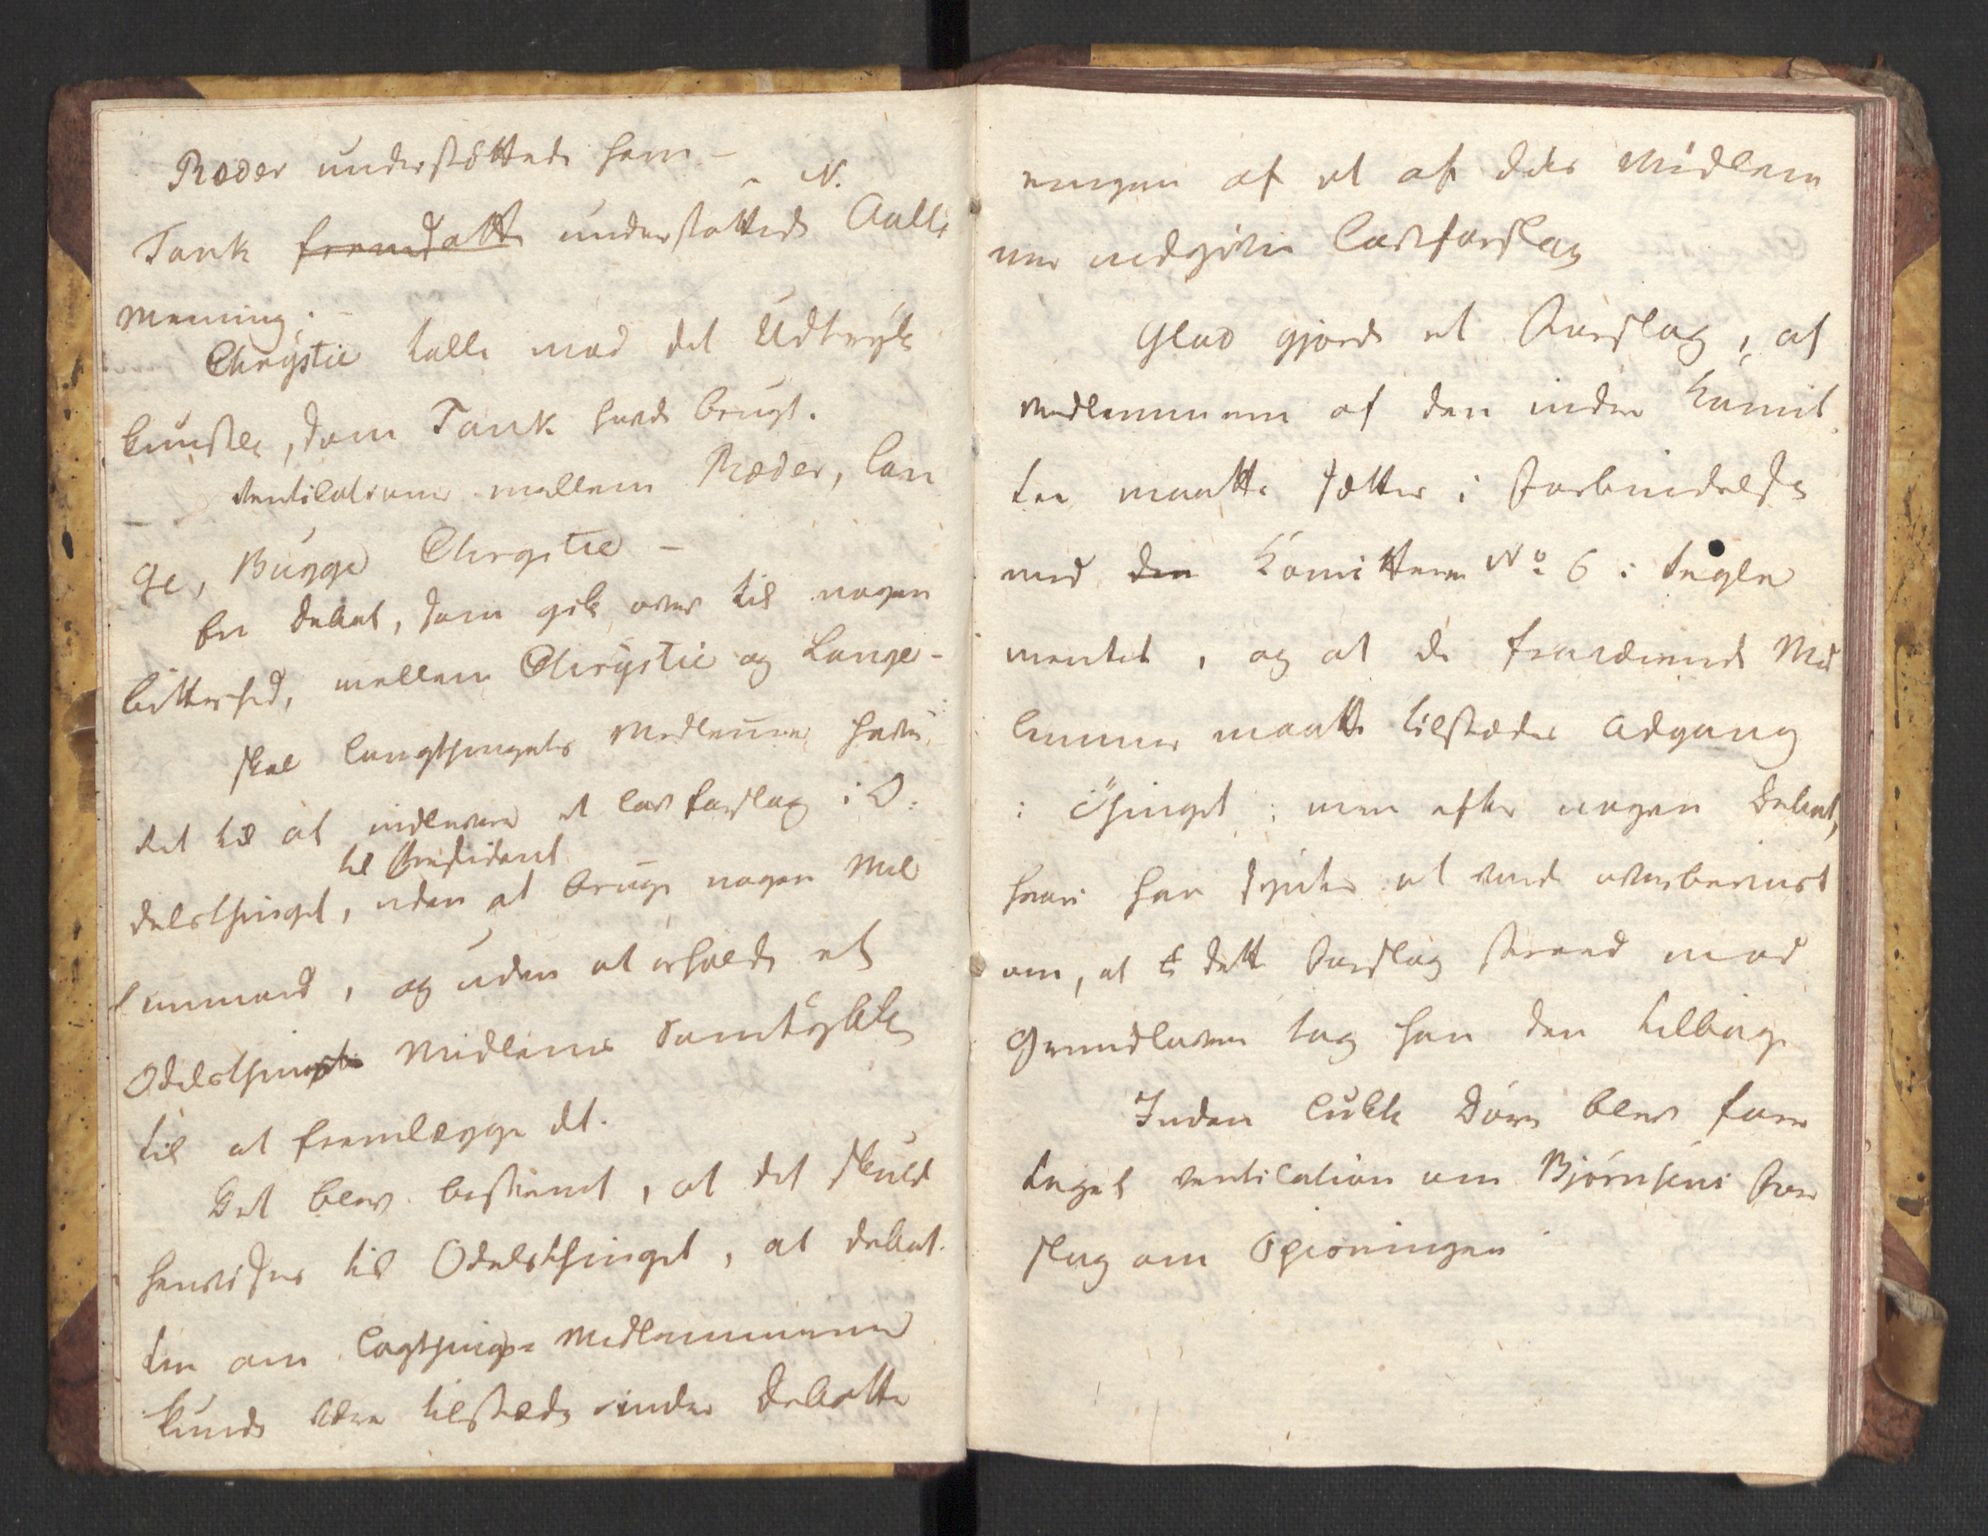 Ræder understöttede ham –
N.
Tank fremsatte understøttede Aalls
Mening; –
Chrÿstie talte mod det Udtryk
kunstler, som Tank havde brugt.
Ventilationer mellem Ræder, Lan
ge, Bugge Chrystie –
En Debat, som gik over til nogen
bitterhed, mellem Chrÿstie og Lange –
skal Lagthingets Medlemmer have
det til at indlevere et Lovforslag i O:
til Præsident
delsthinget, uden at bruge nogen Mel
lemmand, og uden at erholde et
Odelsthings Medlems Samtÿkke
til at fremlægge dt.
Det blev bestemt, at det skulde
henvises til Odelsthinget, at debat
tere om Lagthings Medlemmerne
kunde være tilstæde under Debatte
ringen af et af dets Medlem
mer indgivne Lovforslag
Glad gjorde et Forslag, at
Medlemmerne af den indre Komit
tee maatte sættes i Forbindelse
med den Komitteen No 6 i Regle
mentet, og at de fraværende Med
lemmer maatte tilstædes Adgang
i Thinget; men efter nogen Debat,
hvori han syntes at være overbeviist
om, at dette Forslag streed mod
Grundloven tog han den tilbage
Inden lukte Døre blev fore
taget Ventilation om Bjørnsens For
slag om Spioneringen